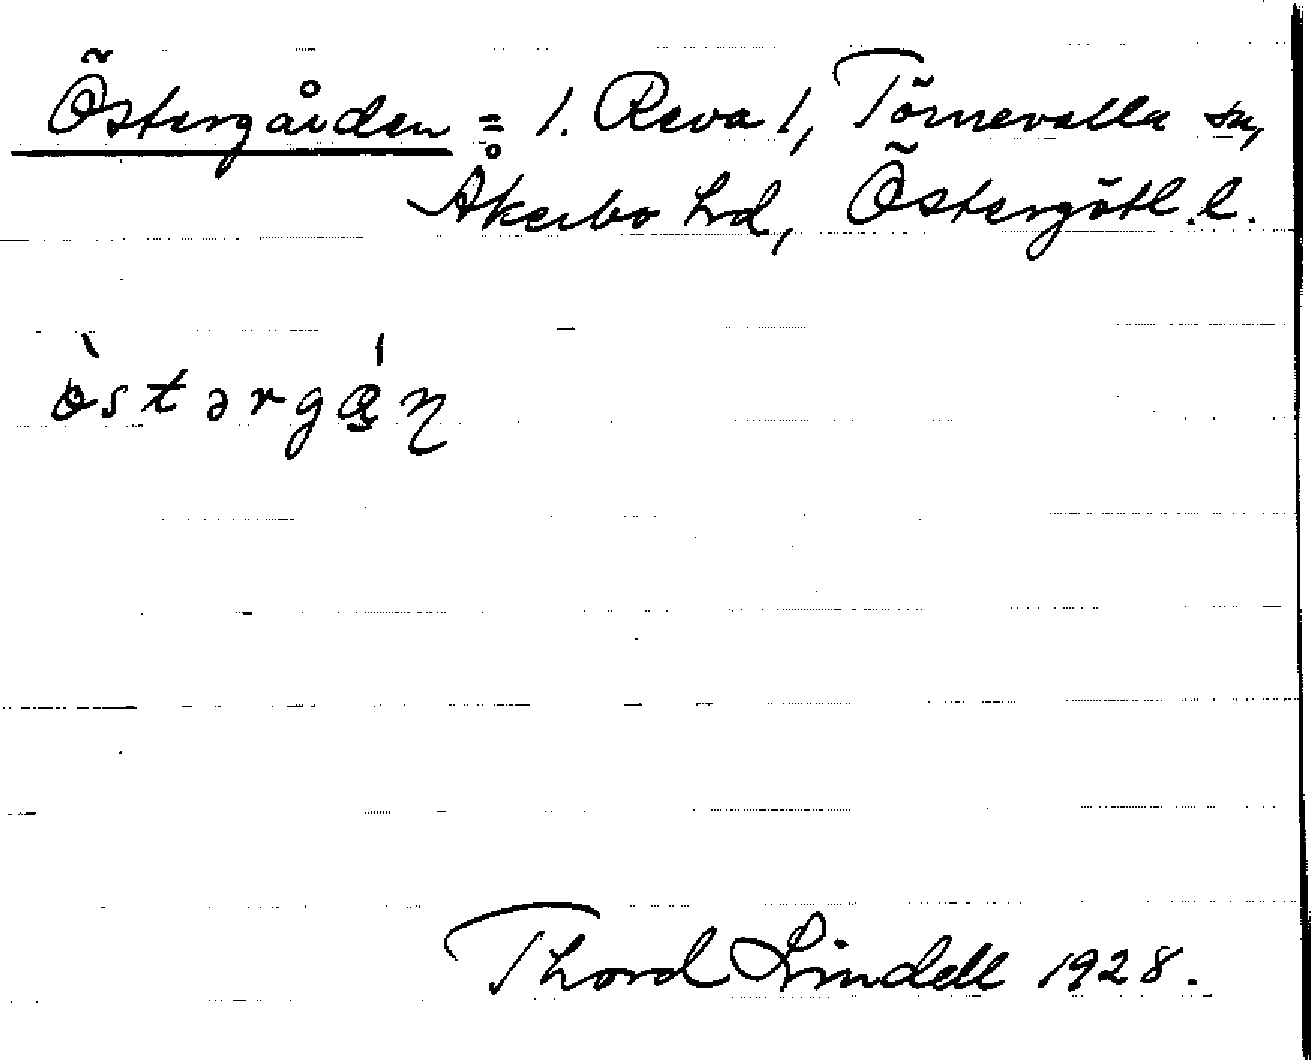 Östergården = 1. Reva 1, Törnevalla sn,
Åkerbo hd, Östergötl. l.
Thord Lindell 1928.